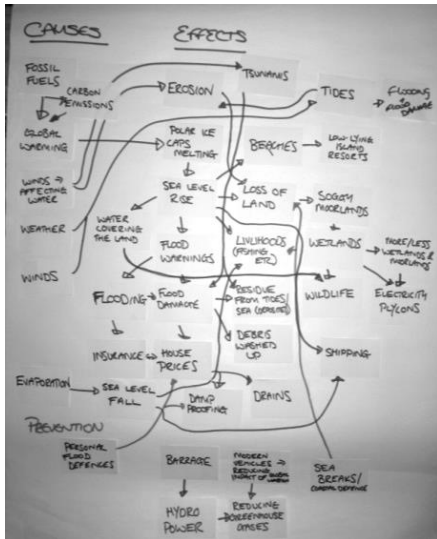 CAUSES
EFFECTS
FOSSIL
FUELS
CARBON
EMISSIONS
EROSION
TSUNAMIS
TIDES
FLOODING
+
FLOOD
DAMAGE
GLOBAL
WARMING
POLAR ICE
CAPS
MELTING
BEACHES
LOW-LYING
ISLAND
RESORTS
WINDS
AFFECTING
WATER
SEA LEVEL
RISE
LOSS OF
LAND
SOGGY
MOORLANDS
WEATHER
WATER
COVERING
THE LAND
FLOOD
WARNINGS
LIVLIHOODS
(FISHING
ETC)
WETLANDS
MORE/LESS
WETLANDS &
MOORLANDS
WINDS
FLOODING
FLOOD
DAMAGE
RESIDUE
FROM TIDES/
SEA (DEPOSITS)
WILDLIFE
ELECTRICITY
PLYONS
INSURANCE
HOUSE
PRICES
DEBRIS
WASHED
UP
SHIPPING
EVAPORATION
SEA LEVEL
FALL
DAMP
PROOFING
DRAINS
PREVENTION
PERSONAL
FLOOD
DEFENCES
BARRAGE
MODERN
VEHICLES
REDUCING
IMPACT OF GLOBAL
WARMING
SEA
BREAKS/
COASTAL DEFENCES
HYDRO
POWER
REDUCING
GREENHOUSE
GASES